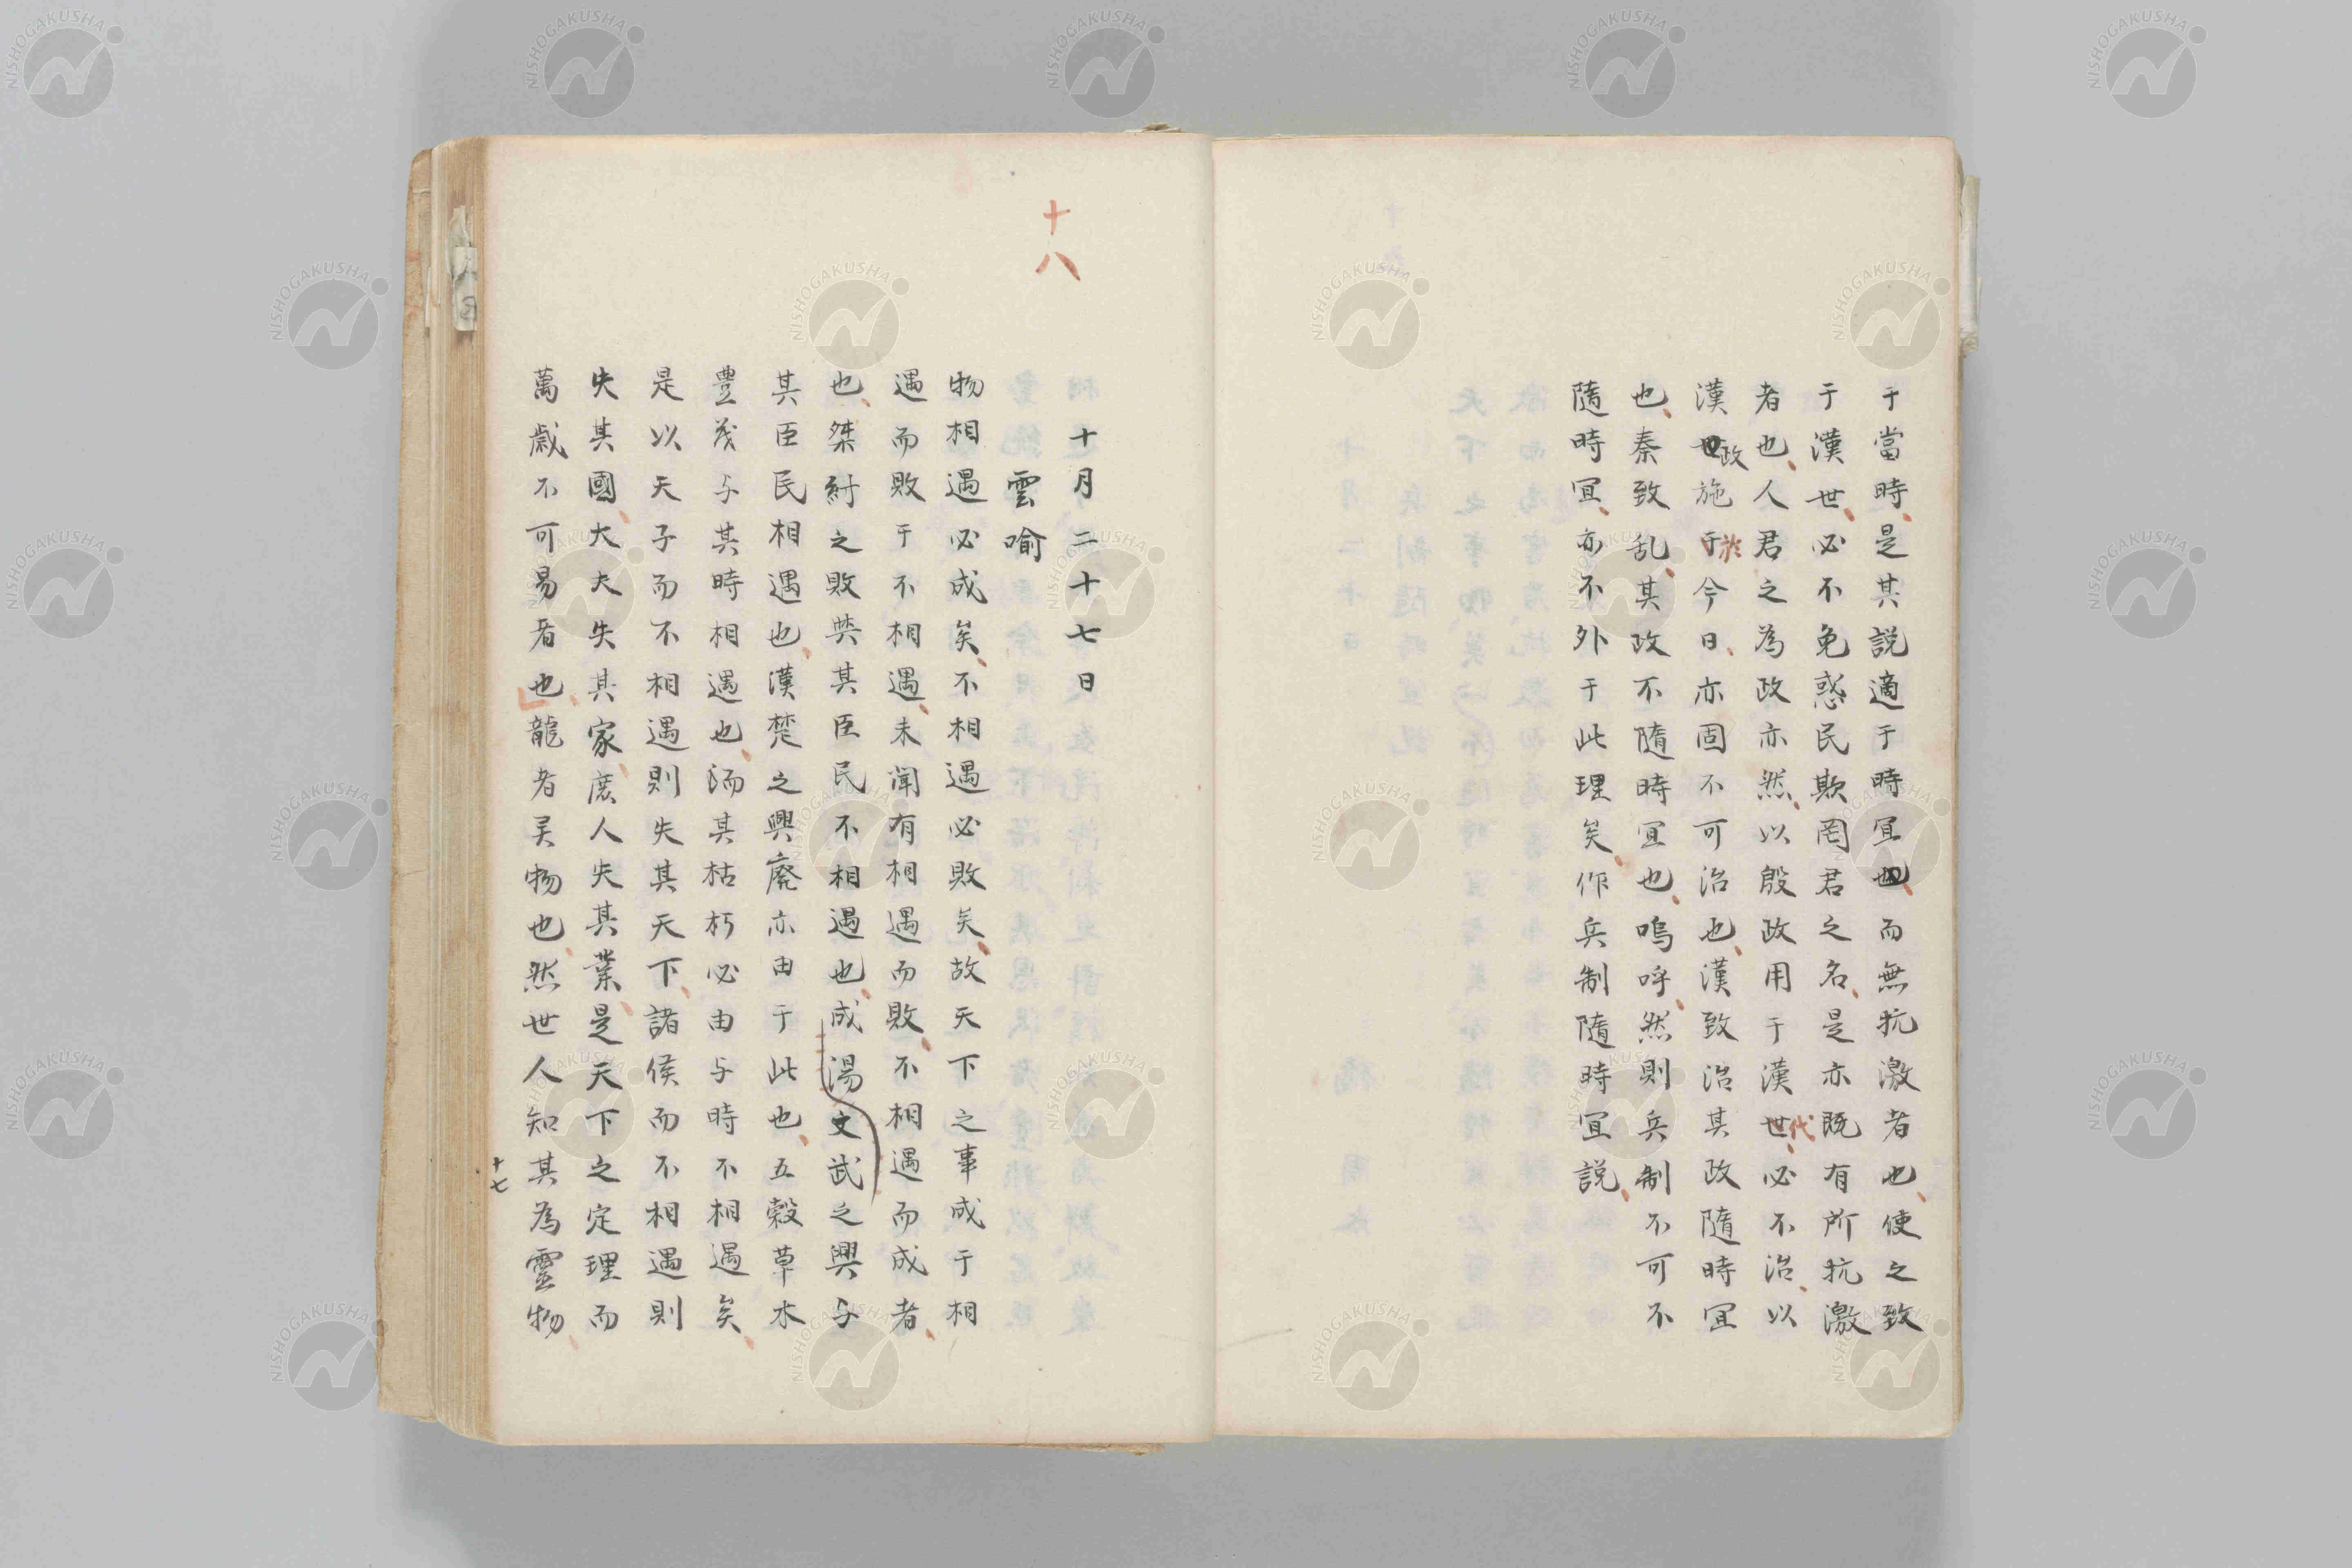 于當時是其説適于時冝也而無抗激者也使之致
于漢世必不免惑民欺罔君之名是亦既有所抗激
者也人君之為政亦然以殷政用于漢世代必不治以
漢世政施于於今日亦固不可治也漢致治其政隨時冝
也秦致乱其政不隨時冝也嗚呼然則兵制不可不
隨時冝亦不外于此理矣作兵制隨時冝説
十八
十月二十七日
雲喻
物相遇必成矣不相遇必敗矣故天下之事成于相
遇而敗于不相遇未聞有相遇而敗不相遇而成者
也桀紂之敗與其臣民不相遇也成湯文武之興与
其臣民相遇也漢楚之興廢亦由于此也五穀草木
豊茂与其時相遇也而其枯朽必由与時不相遇矣
是以天子而不相遇則失其天下諸侯而不相遇則
失其國大夫失其家庶人失其業是天下之定理而
萬歲不可易者也龍者灵物也然世人知其為靈物
十七
NISHOGAKUSHA